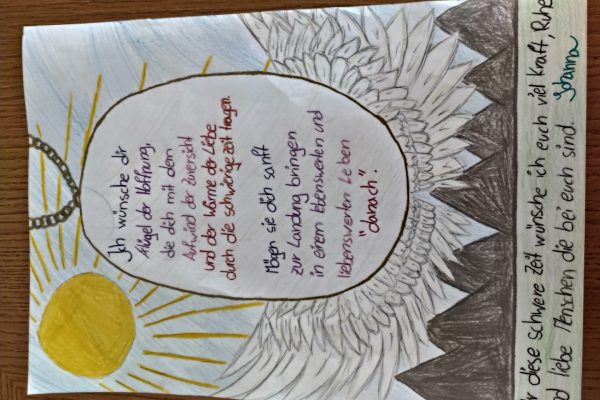 Ich wünsche dir
Flügel der Hoffnung,
die dich mit dem
Aufwind der Zuversicht
und der Wärme der Liebe
durch die schwierige Zeit tragen.
Mögen sie dich sanft
zur Landung bringen
in einem lebenswerten und
liebenswerten Leben
"danach".
diese schwere Zeit wünsche ich euch viel Kraft, Ruhe
liebe Menschen die bei euch sind. Johanna